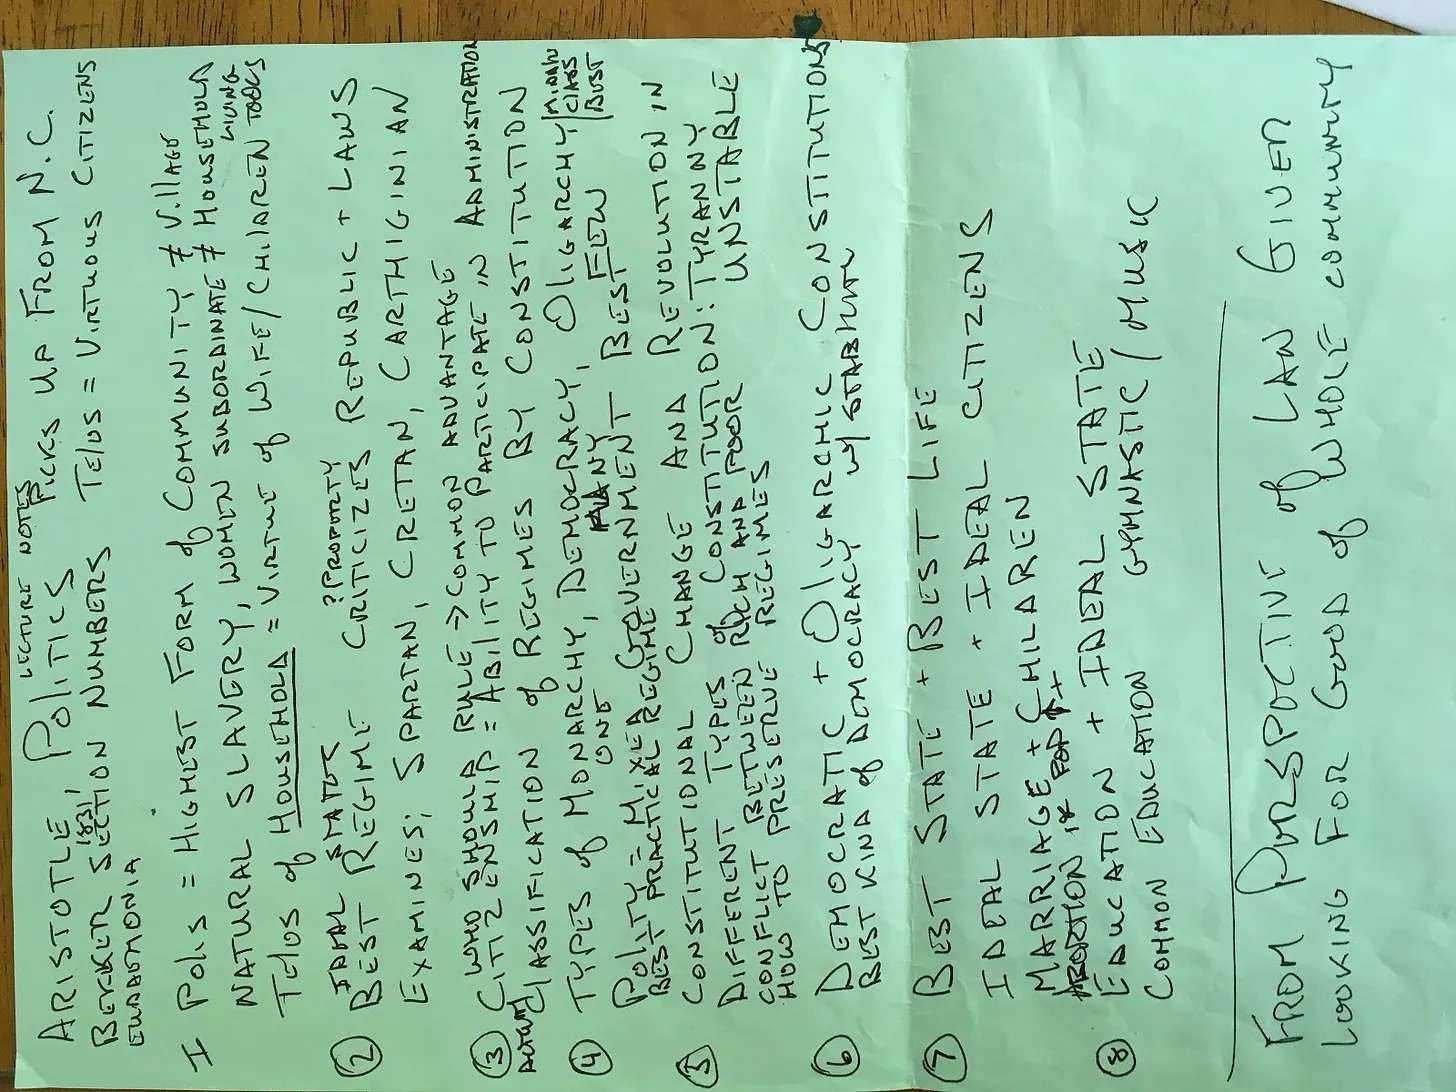 LECTURE NOTES
ARISTOTLE POLITICS PICKS UP FROM N.C.
BEKKER 1831, SECTION NUMBERS TELOS = VIRTUOUS CITIZENS
EUDADMONIA
I POLIS = HIGHEST FORM of COMMUNITY ≠ VILLAGE
NATURAL SLAVERY, WOMEN SUBORDINATE ≠ HOUSEHOLD
LIVING TOOLS
TELOS of HOUSEHOLD = VIRTUE of WIFE/CHILDREN
IDEAL STATES ?PROPERTY
② BEST REGIME CRITICIZES REPUBLIC + LAWS
EXAMINES; SPARTAN, CRETAN, CARTHIGINIAN
WHO SHOULD RULE → COMMON ADVANTAGE
③ CITIZENSHIP = ABILITY TO PARTICIPATE IN ADMINISTRATION
CLASSIFICATION of REGIMES BY CONSTITUTION
④ TYPES of MONARCHY, DEMOCRACY, OLIGARCHY / MIDDLE CLASS BEST
ONE MANY FEW
POLITY = MIXED GOVERNMENT BEST
BEST PRACTICAL REGIME
⑤ CONSTITUTIONAL CHANGE AND REVOLUTION IN
DIFFERENT TYPES of CONSTITUTION: TYRANNY
UNSTABLE
CONFLICT BETWEEN RICH AND POOR
HOW TO PRESERVE REGIMES
⑥ DEMOCRATIC + OLIGARCHIC CONSTITUTIONS
BEST KIND of DEMOCRACY w/ STABILITY
⑦ BEST STATE + BEST LIFE
IDEAL STATE + IDEAL CITIZENS
MARRIAGE + CHILDREN
ABORTION IS FOR
⑧ EDUCATION + IDEAL STATE
COMMON EDUCATION GYMNASTIC / MUSIC
FROM PERSPECTIVE of LAW GIVER
LOOKING FOR GOOD of WHOLE COMMUNITY